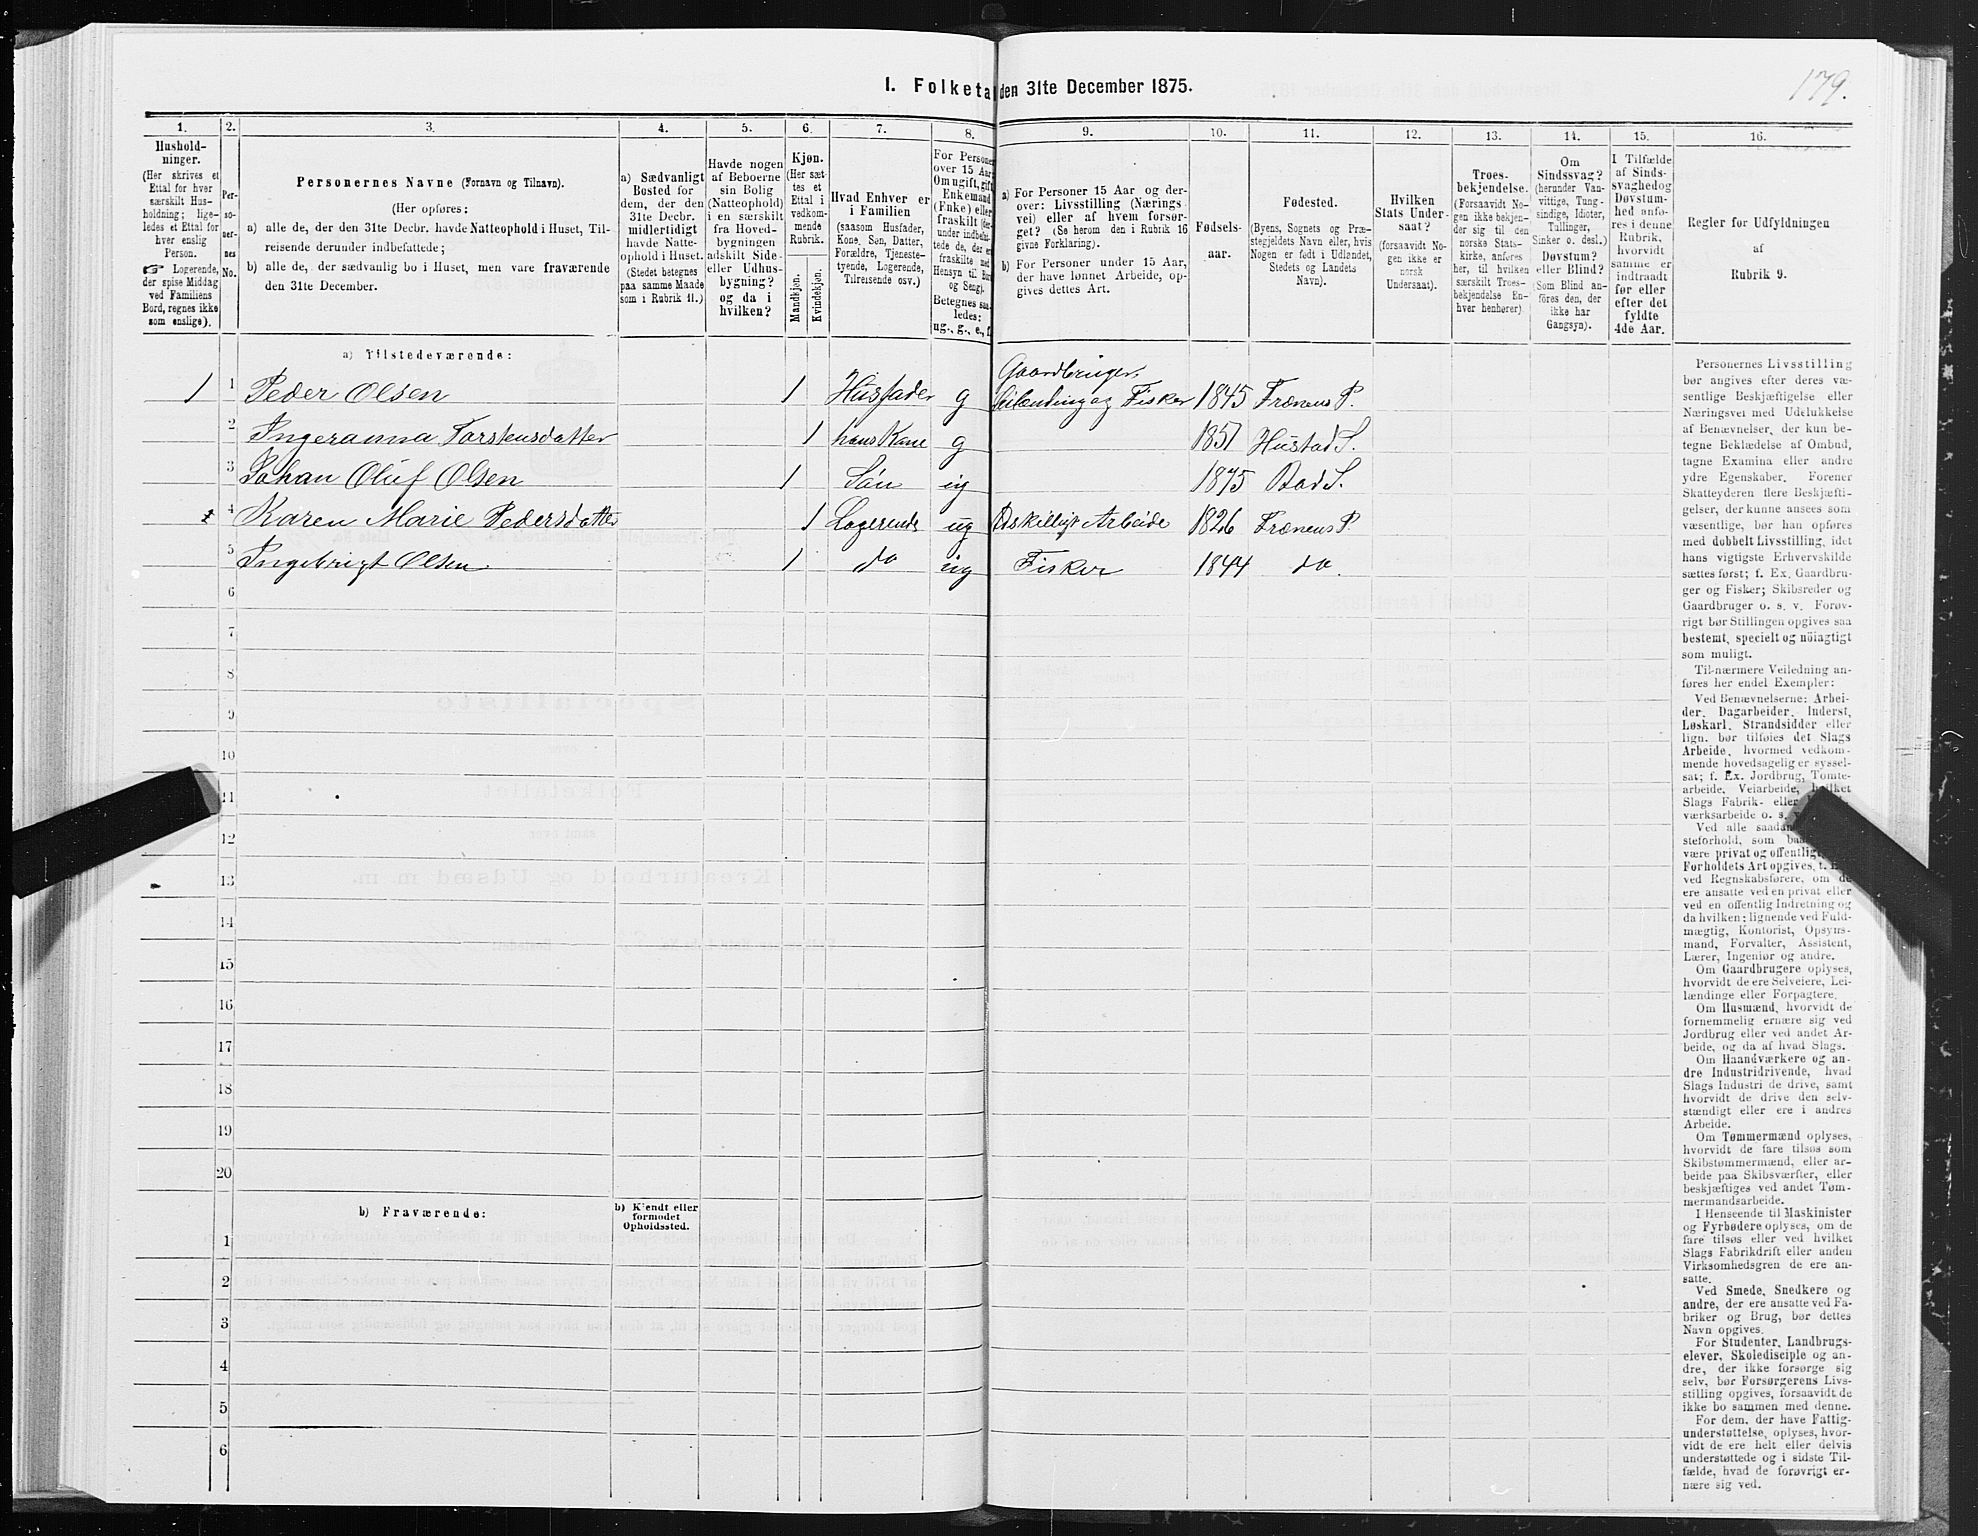 179.
I. Folketa den 31te December 1875.
1.
2.
3.
4.
5.
6.
7.
8.
9.
10.
11.
12.
13.
14.
15.
16.
Hushold-
ninger.
(Her skrives et
Ettal for hver
særskilt Hus-
holdning; lige-
ledes et Ettal for
hver enslig
Person.
☞ Logerende,
der spise Middag
ved Familiens
Bord, regnes ikke
som enslige).
Per-
so-
ner-
nes
No.
Personernes Navne (Fornavn og Tilnavn).
(Her opføres:
a) alle de, der den 31te Decbr. havde Natteophold i Huset, Til-
reisende derunder indbefattede;
b) alle de, der sædvanlig bo i Huset, men vare fraværende
den 31te December.
a) Sædvanligt
Bosted for
dem, der den
31te Decbr.
midlertidigt
havde Natte-
ophold i Huset.
(Stedet betegnes
paa samme Maade
som i Rubrik 11.)
Havde nogen
af Beboerne
sin Bolig
(Natteophold)
i en særskilt
fra Hoved-
bygningen
adskilt Side-
eller Udhus-
bygning?
og da i
hvilken?
Kjøn.
(Her sæt-
tes et
Ettal i
vedkom-
mende
Rubrik.
Mandkjøn.
Kvindekjøn.
Hvad Enhver er
i Familien
(saasom Husfader,
Kone, Søn, Datter,
Forældre, Tjeneste-
tyende, Logerende,
Tilreisende osv.)
For Personer
over 15 Aar:
Om ugift, gift,
Enkemand
(Enke) eller
fraskilt (der-
under indbefat-
tede de, der er
fraskilte med
Hensyn til Bord
og Seng).
Betegnes saa-
ledes:
ug., g., e., f.
a) For Personer 15 Aar og der-
over: Livsstilling (Nærings-
vei) eller af hvem forsør-
get? (Se herom den i Rubrik 16
givne Forklaring).
b) For Personer under 15 Aar,
der have lønnet Arbeide, op-
gives dettes Art.
Fødsels-
aar.
Fødested.
(Byens, Sognets og Præ-
stegjeldets Navn eller, hvis
Nogen er født i Udlandet,
Stedets og Landets
Navn).
Hvilken
Stats Under-
saat?
(forsaavidt No-
gen ikke er
norsk
Undersaat).
Troes-
bekjendelse.
(Forsaavidt No-
gen ikke bekjen-
der sig til den
norske Stats-
kirke, anføres
her, til hvilken
særskilt Troes-
bekjendelse En-
hver henhører)
Om
Sindssvag?
(herunder Van-
vittige, Tung-
sindige, Idioter,
Tallinger,
Sinker o. desl.)
Døvstum?
eller Blind?
(Som Blind an-
føres den, der
ikke har
Gangsyn).
I Tilfælde
af Sinds-
svaghed og
Døvstum-
hed anfø-
res i denne
Rubrik,
hvorvidt
samme er
indtraadt
før eller
efter det
fyldte
4de Aar.
Regler for Udfyldningen
af
Rubrik 9.
a) Tilstedeværende:
1 1 Peder Olsen 1 Husfader g Gaardbruger, Leilending og Fisker 1845 Frænens P.
2 Ingeranna Torstensdatter 1 hans Kone g 1851 Hustad S.
3 Johan Oluf Olsen 1 Søn ug 1875 Bod S.
4 Karen Marie Pedersdatter 1 Logerende ug Adskilligt Arbeide 1826 Frænens P.
5 Ingebrigt Olsen 1 do ug Fisker 1844 do.
6
7
8
9
10
11
12
13
14
15
16
17
18
19
20
b) Fraværende:
b) Kjendt eller
formodet
Opholdssted.
1
2
3
4
5
6
Personernes Livsstilling
bør angives efter deres væ-
sentlige Beskjæftigelse eller
Næringsvei med Udelukkelse
af Benævnelser, der kun be-
tegne Beklædelse af Ombud,
tagne Examina eller andre
ydre Egenskaber. Forener
Skatteyderen flere Beskjæfti-
gelser, der kunne ansees som
væsentlige, bør han opføres
med dobbelt Livsstilling, idet
hans vigtigste Erhvervskilde
sættes først; f. Ex. Gaardbru-
ger og Fisker; Skibsreder og
Gaardbruger o. s. v. Forøv-
rigt bør Stillingen opgives saa
bestemt, specielt og nöiagtigt
som muligt.
Til nærmere Veiledning an-
føres her endel Exempler:
Ved Benævnelserne: Arbei-
der, Dagarbeider, Inderst,
Løskarl, Strandsidder eller
lign. bør tilføies det Slags
Arbeide, hvormed vedkom-
mende hovedsagelig er syssel-
sat; f. Ex. Jordbrug, Tomte-
arbeide, Veiarbeide, hvilket
Slags Fabrik- eller
værksarbeide o. s.
Ved alle saadan
steforhold, som
være privat og offentlig
Forholdets Art opgives, t.
ved Regnskabsførere, om de
ere ansatte ved en privat eller
ved en offentlig Indretning og
da hvilken; lignende ved Fuld-
mægtig, Kontorist, Opsyns-
mand, Forvalter, Assistent,
Lærer, Ingeniør og andre.
Om Gaardbrugere oplyses,
hvorvidt de ere Selveiere, Lei-
lændinge eller Forpagtere.
Om Husmænd, hvorvidt de
fornemmelig ernære sig ved
Jordbrug eller ved andet Ar-
beide, og da af hvad Slags.
Om Haandværkere og an-
dre Industridrivende, hvad
Slags Industri de drive, samt
hvorvidt de drive den selv-
stændigt eller ere i andres
Arbeide.
Om Tømmermænd oplyses,
hvorvidt de fare tilsøs som
Skibstømmermænd, eller ar-
beide paa Skibsværfter, eller
beskjæftiges ved andet Tøm-
mermandsarbeide.
I Henseende til Maskinister
og Fyrbødere oplyses, om de
fare tilsøs eller ved hvilket
Slags Fabrikdrift eller anden
Virksomhedsgren de ere an-
satte.
Ved Smede, Snedkere og
andre, der ere ansatte ved Fa-
briker og Brug, bør dettes
Navn opgives.
For Studenter, Landbrugs-
elever, Skoledisciple og an-
dre, der ikke forsørge sig
selv, bør Forsørgerens Livs-
stilling opgives, forsaavidt de
ikke bo sammen med denne.
For dem, der have Fattig-
understøttelse, oplyses, hvor-
vidt de ere helt eller delvis
understøttede og i sidste Til-
fælde, hvad de forøvrigt er-
nære sig ved.